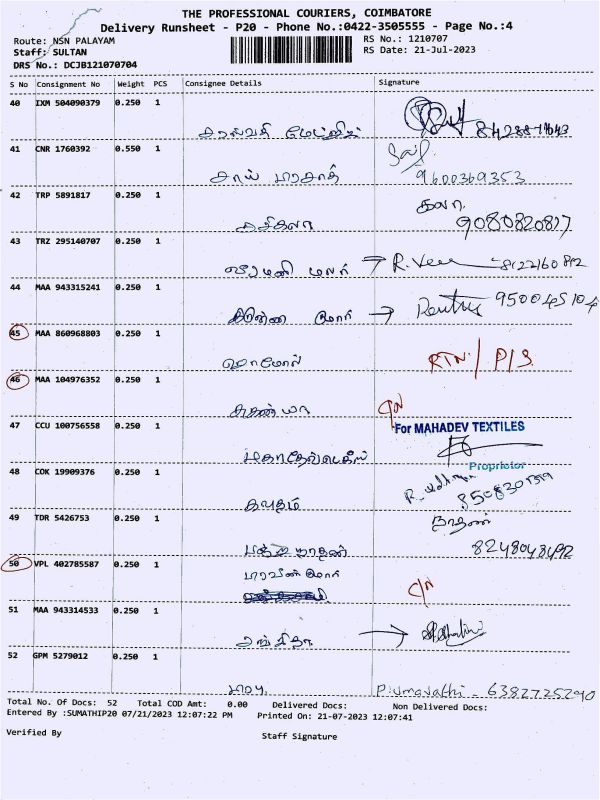 THE PROFESSIONAL COURIERS, COIMBATORE
Delivery Runsheet - P20 - Phone No.:0422-3505555 - Page No.:4
Route: NSN PALAYAM
RS No.: 1210707
Staff: SULTAN
RS Date: 21-Jul-2023
DRS No.: DCJB121070704
S No Consignment No Weight PCS Consignee Details Signature
40 IXM 504090379 0.250 1
41 CNR 1760392 0.550 1
சாய் பிரசாத் 9600369353
42 TRP 5891817 0.250 1 கலா
சசிகலா 9080820817
43 TRZ 295140707 0.250 1
வீரமணி மலர் → R. Vee
44 MAA 943315241 0.250 1
→ 950045104
45 MAA 860968803 0.250 1
RTN / P/S
46 MAA 104976352 0.250 1
சுகன்யா C/N
47 CCU 100756558 0.250 1 For MAHADEV TEXTILES
Proprietor
48 COK 19909376 0.250 1
கவுதம்
49 TDR 5426753 0.250 1 நாதன்
8248048492
50 VPL 402785587 0.250 1
C/N
51 MAA 943314533 0.250 1
சங்கீதா →
52 GPM 5279012 0.250 1
P. Umavathi - 6382725290
Total No. Of Docs: 52 Total COD Amt: 0.00 Delivered Docs: Non Delivered Docs:
Entered By :SUMATHIP20 07/21/2023 12:07:22 PM Printed On: 21-07-2023 12:07:41
Verified By Staff Signature